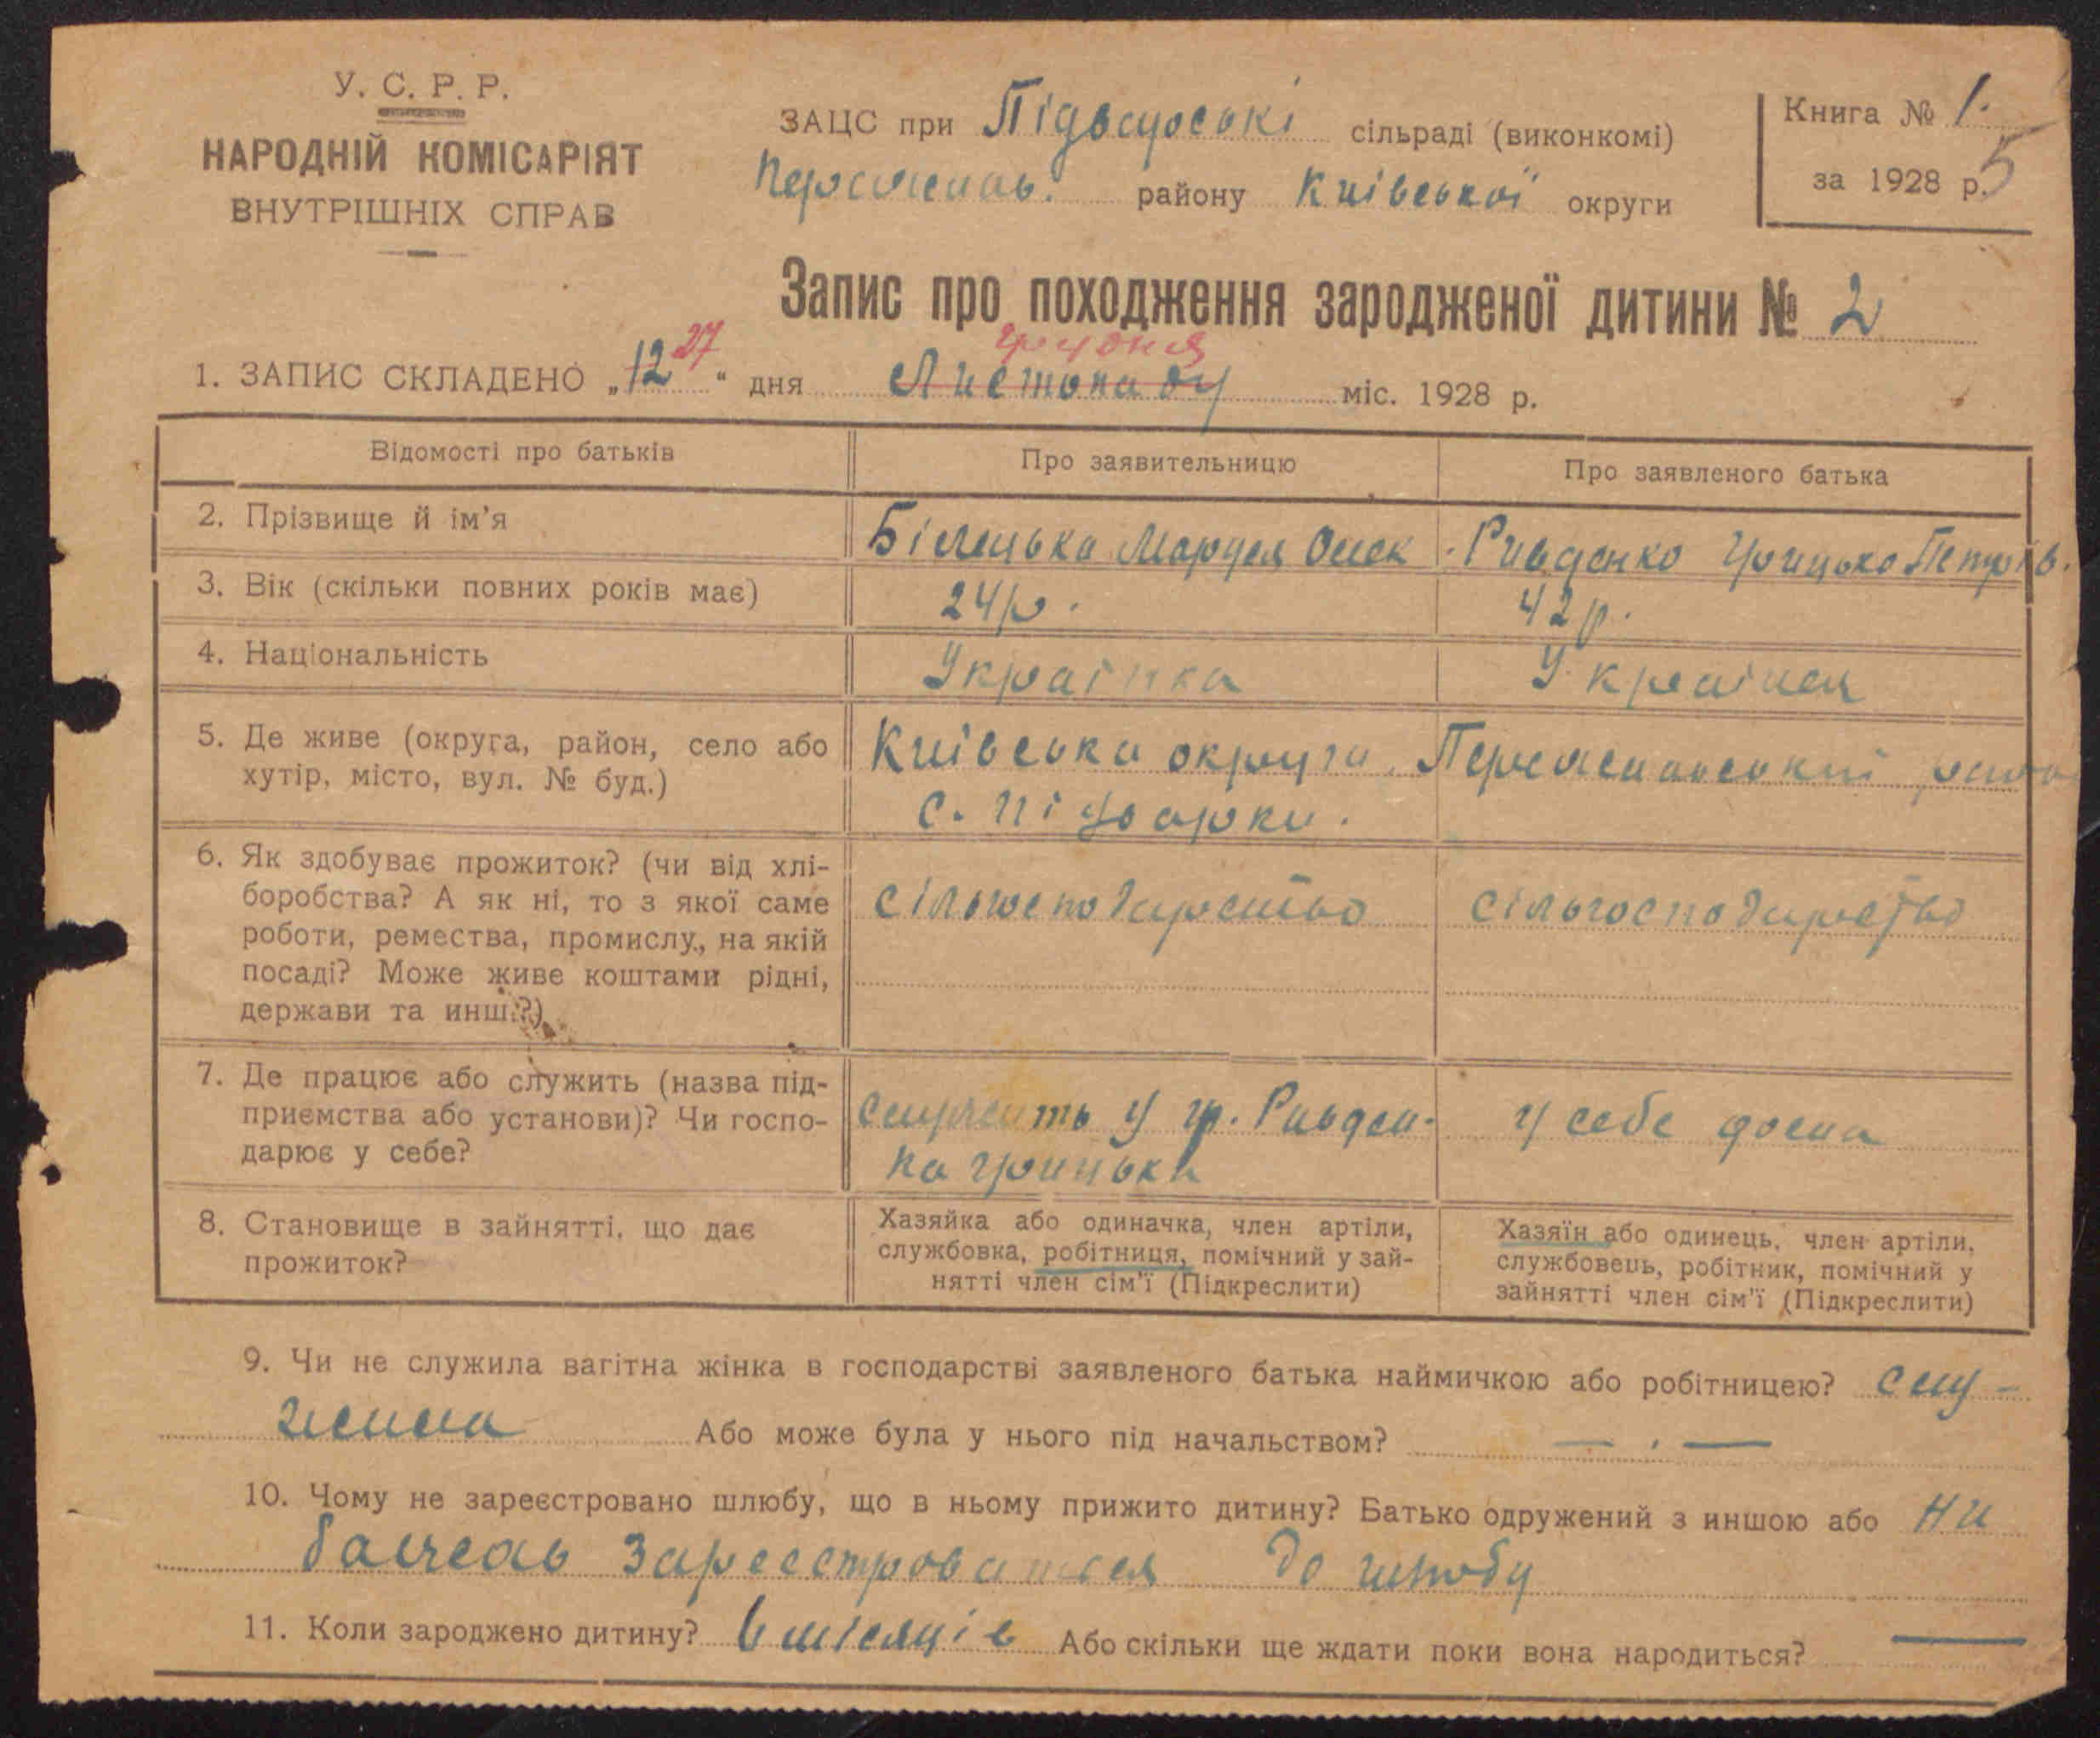 У. С. Р. Р.
НАРОДНІЙ КОМІСАРІЯТ
ВНУТРІШНІХ СПРАВ
ЗАЦС при сільраді (виконкомі)
Переяслав. району Київської округи
Книга № 1.
за 1928 р. 5
Запис про походження зародженої дитини № 2
27 грудня
1. ЗАПИС СКЛАДЕНО „12“ дня Листопаду міс. 1928 р.
Відомості про батьків Про заявительницю Про заявленого батька
2. Прізвище й ім'я Білецька Олек. Грицько Петрів.
3. Вік (скільки повних років має) 24 р. 42 р.
4. Національність Українка Українец
5. Де живе (округа, район, село або Київська округа, Переяславський
хутір, місто, вул. № буд.) с.
6. Як здобуває прожиток? (чи від хлі-
боробства? А як ні, то з якої саме сільгосподарство сільгосподарство
роботи, ремества, промислу, на якій
посаді? Може живе коштами рідні,
держави та инш.?)
7. Де працює або служить (назва під-
приємства або установи)? Чи госпо- служить у гр. у себе дома
дарює у себе? Грицька
8. Становище в зайнятті, що дає
прожиток?
Хазяйка або одиначка, член артіли,
службовка, робітниця, помічний у зай-
нятті член сім'ї (Підкреслити)
Хазяїн або одинець, член артіли,
службовець, робітник, помічний у
зайнятті член сім'ї (Підкреслити)
9. Чи не служила вагітна жінка в господарстві заявленого батька наймичкою або робітницею? слу-
жила Або може була у нього під начальством? — . —
10. Чому не зареєстровано шлюбу, що в ньому прижито дитину? Батько одружений з иншою або ни
до шлюбу
11. Коли зароджено дитину? 6 місяців Або скільки ще ждати поки вона народиться? —